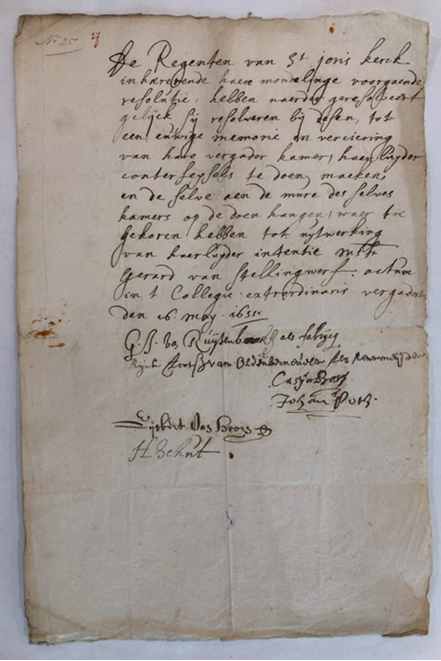 No 25
De Regenten van St. joris kerck
inhaererende haere mondelinge voorgaende
resolutie, hebben naerder geresolveert
gelijck sij resolveren bij desen, tot
een euwige memorie en verciering
van hare vergader kamer, haerluyder
conterfeytsels te doen maeken
en de selve aen de mure des selves
kamers op de doen hangen, waer toe
gekoren hebben tot uytwerking
van haerluyder intentie mr.
Gerard van Stellingwerf. actum
in t Collegie extrordinaris vergadert
den 16 may 1651
van Ruijtenb als fabrijcq
van Als Renmeester
Casijn
Johan
Eijsbert van
H Schut